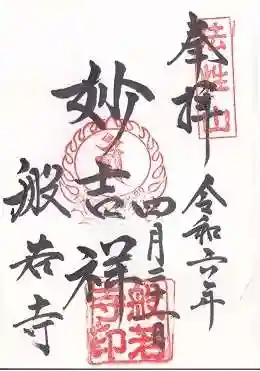 法性山
奉拝
令和六年
四月
妙吉祥
般若寺
般若
寺印